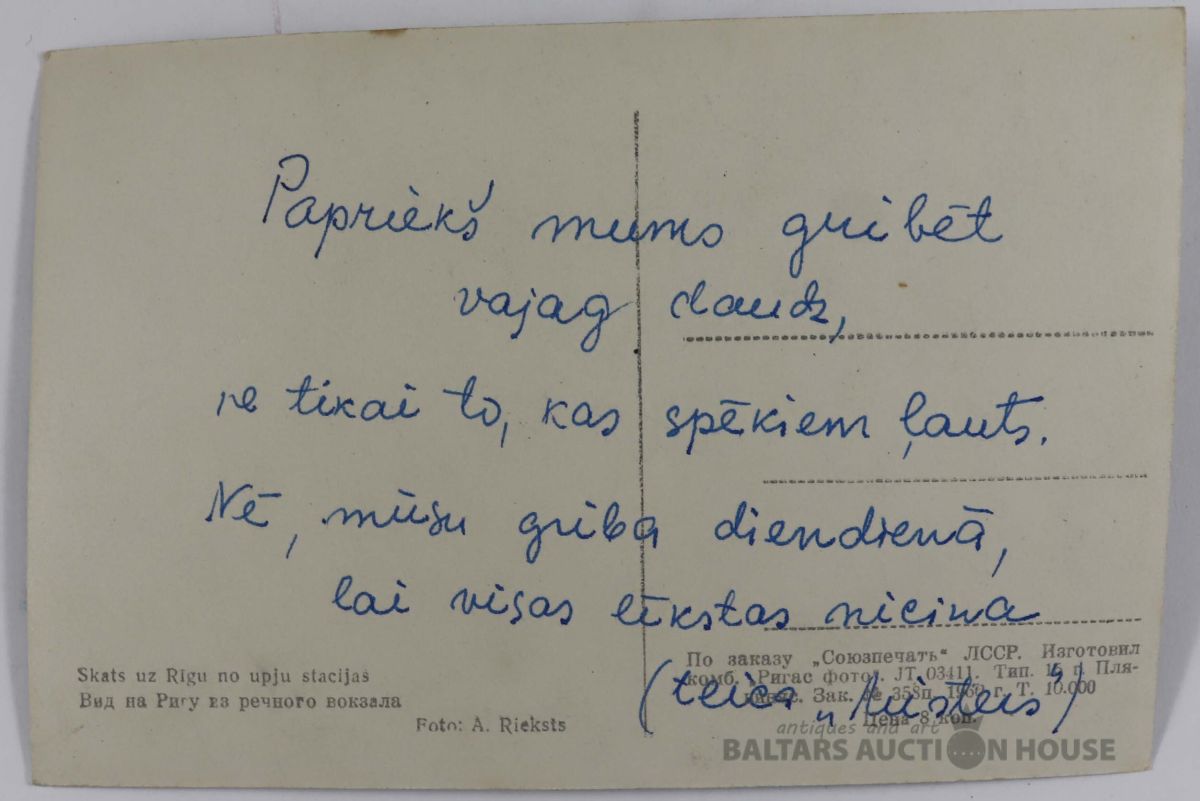 Papriekš mums gribēt
vajag daudz,
ne tikai to, kas spēkiem ļauts.
Nē, mūsu griba diendienā,
lai visas lēkstas nicina
(teica „Meisters”)
Skats uz Rīgu no upju stacijas
Вид на Ригу из речного вокзала
Foto: A. Rieksts
По заказу „Союзпечать“ ЛССР. Изготовил
комб. „Ригас фото“. JT 03411. Тип. п Пля-
Зак. № 358п. 1960 г. Т. 10.000
Цена 8 коп.
antiques and art
BALTARS AUCTION HOUSE